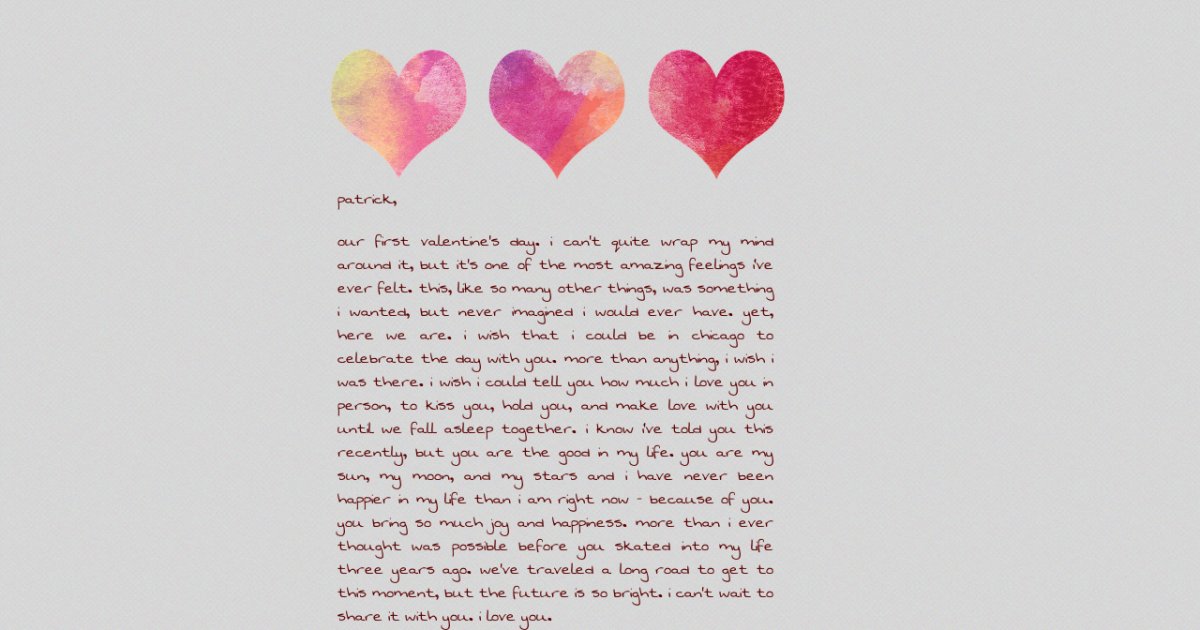 patrick,
our first valentine's day. i can't quite wrap my mind
around it, but it's one of the most amazing feelings i've
ever felt. this, like so many other things, was something
i wanted, but never imagined i would ever have. yet,
here we are. i wish that i could be in chicago to
celebrate the day with you. more than anything, i wish i
was there. i wish i could tell you how much i love you in
person, to kiss you, hold you, and make love with you
until we fall asleep together. i know i've told you this
recently, but you are the good in my life. you are my
sun, my moon, and my stars and i have never been
happier in my life than i am right now - because of you.
you bring so much joy and happiness. more than i ever
thought was possible before you skated into my life
three years ago. we've traveled a long road to get to
this moment, but the future is so bright. i can't wait to
share it with you. i love you.